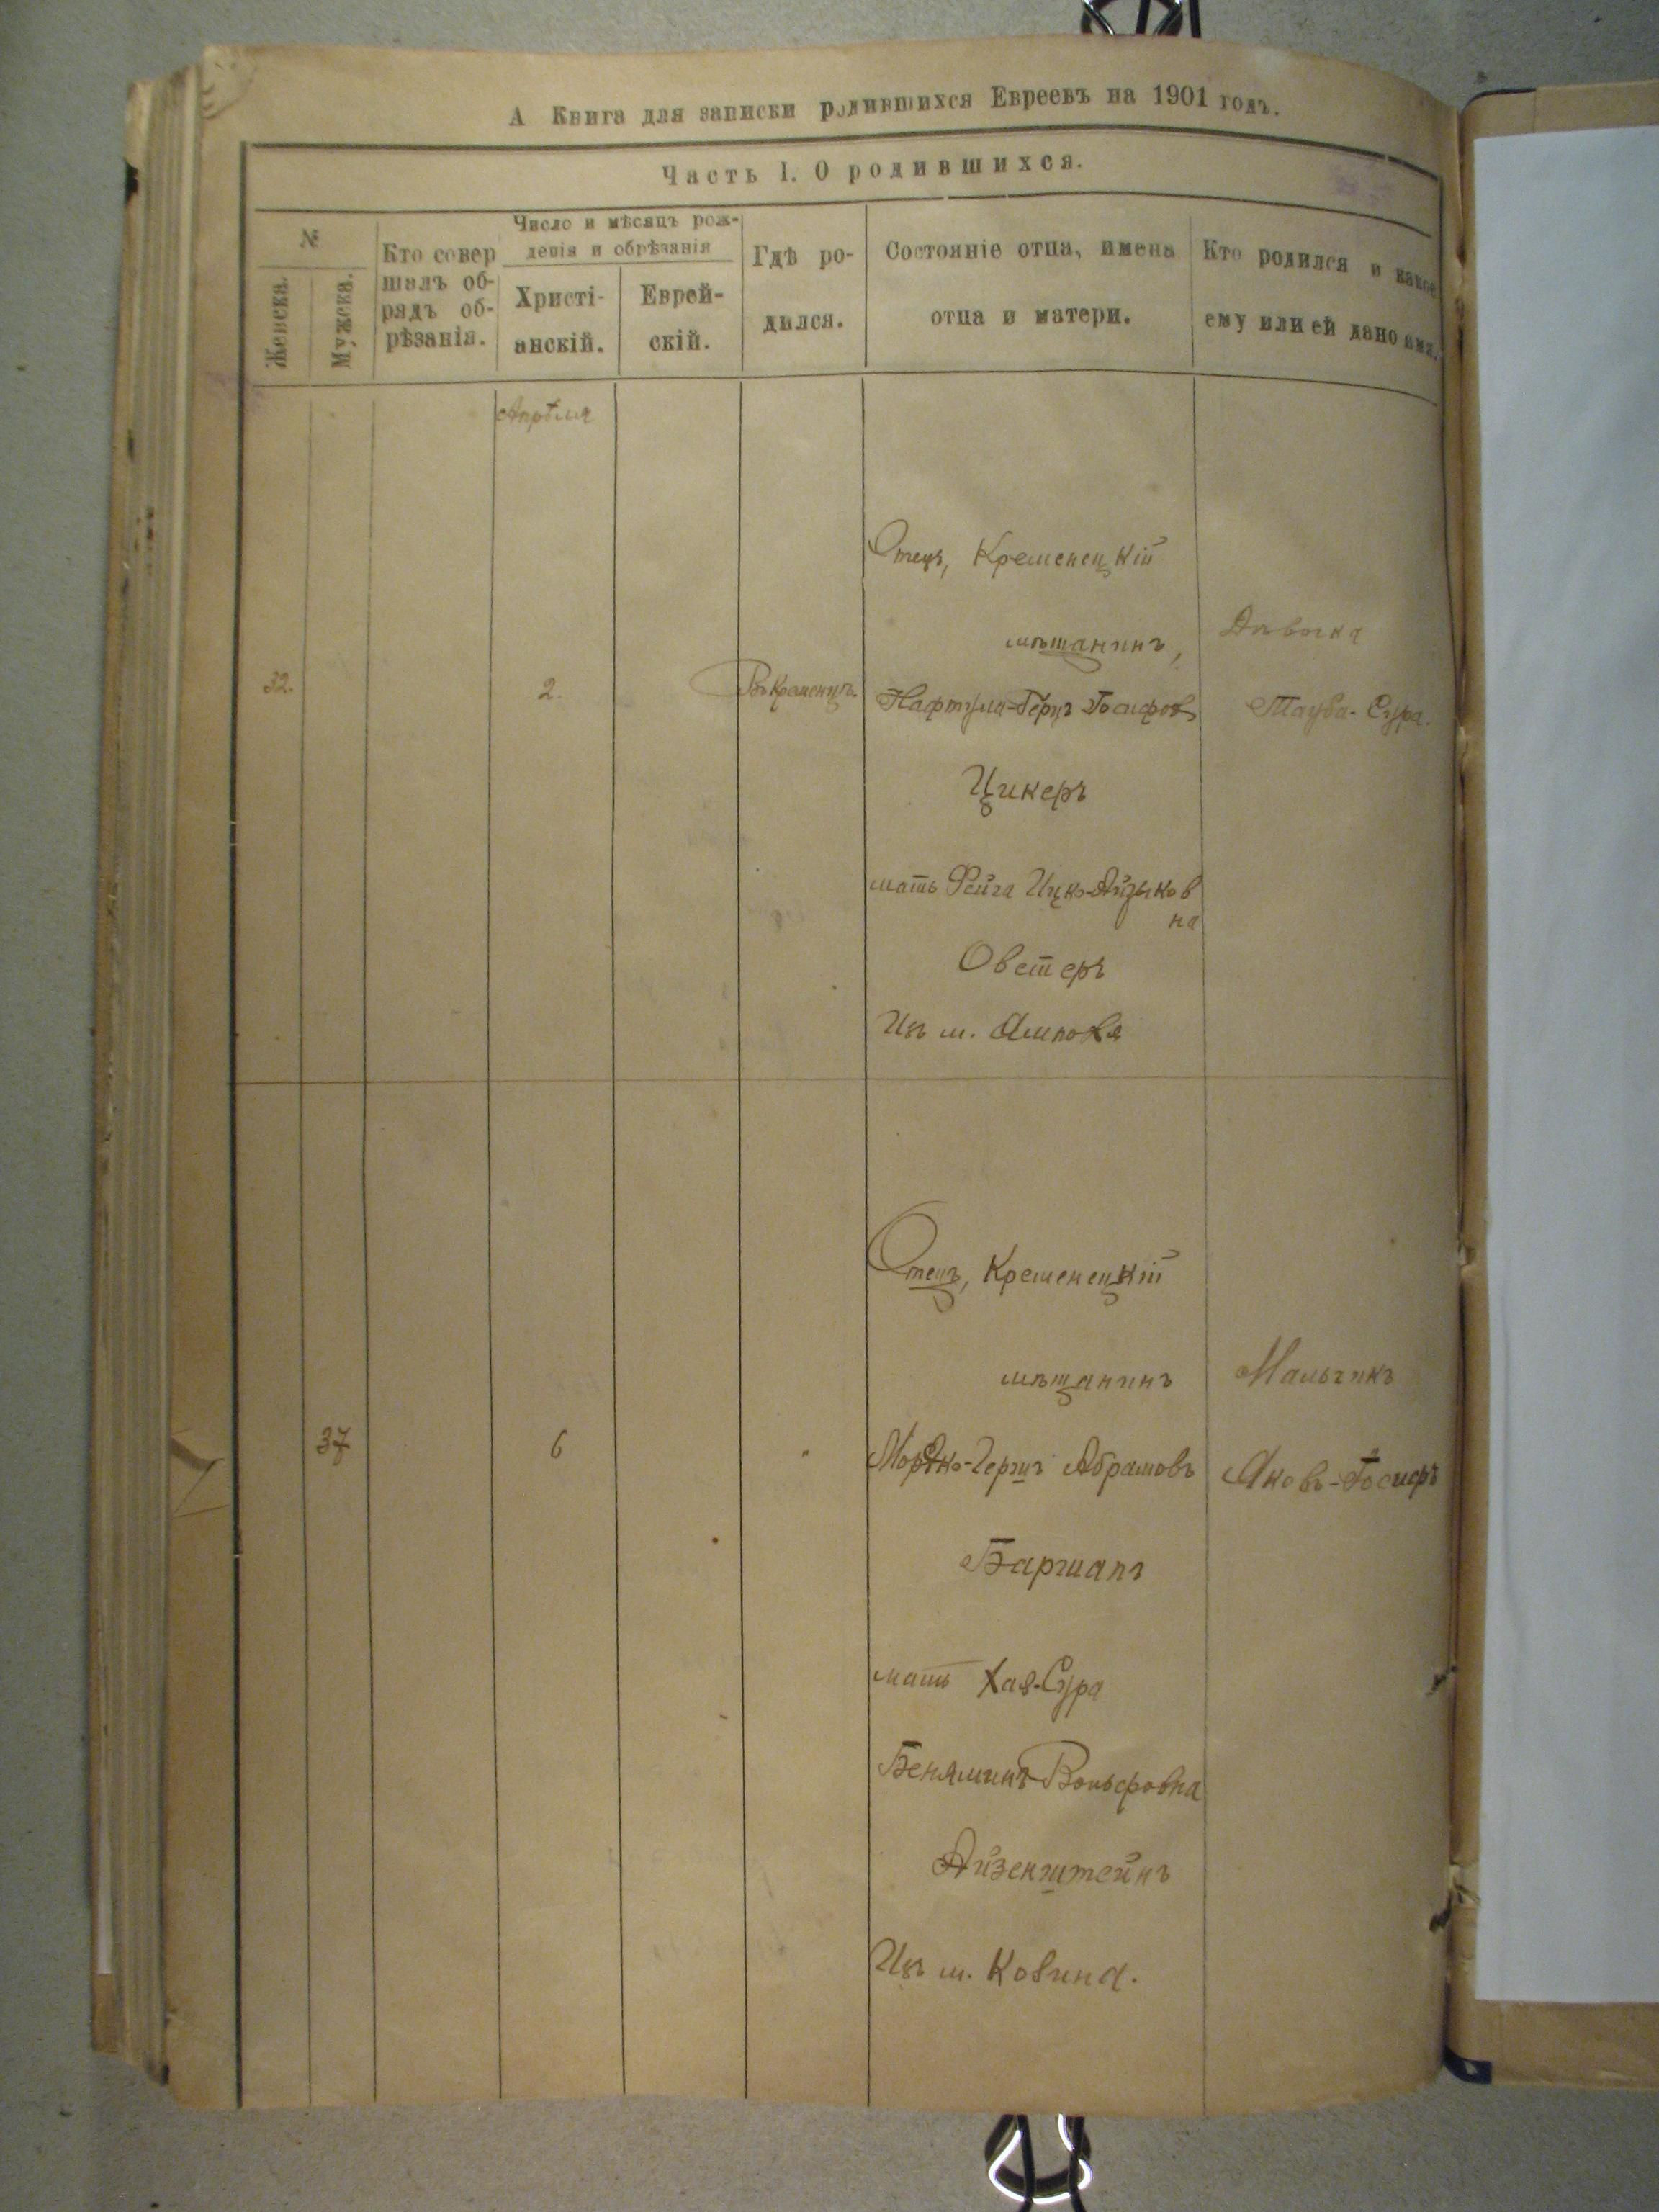 А Книга для записки родившихся Евреевъ на 1901 годъ.
Часть I. О родившихся.
№
Женска.
Мужска.
Кто совер
шалъ об-
рядъ об-
рѣзанія.
Число и мѣсяцъ рож-
денія и обрѣзанія
Христі-
анскій.
Еврей-
скій.
Гдѣ ро-
дился.
Состояніе отца, имена
отца и матери.
Кто родился и какое
ему или ей дано имя.
Апрѣля
32.
2.
Въ Кременцѣ.
Отецъ, Кременецкій
мѣщанинъ,
Нафтула-Герцъ Іосифов
Цикеръ
мать Фейга Ицко-Айзыков
на
Овстеръ
Изъ м. Ямполя
Дѣвочка
Тауба-Сура.
37
6
"
Отецъ, Кременецкій
мѣщанинъ
Мордко-Гершъ Абрамовъ
Баршапъ
мать Хая-Сура
Беняминъ-Вольфовна
Айзенштейнъ
Изъ м. Ковина.
Мальчикъ
Яковъ-Іосифъ